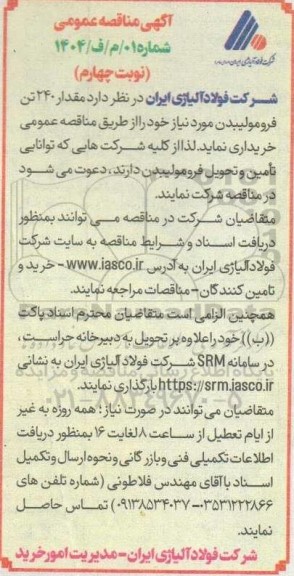 آگهی مناقصه عمومی
شماره ۰۱/م/ف/۱۴۰۴
(نوبت چهارم)
شرکت فولاد آلیاژی ایران
شرکت فولاد آلیاژی ایران در نظر دارد مقدار ۲۴۰ تن
فرومولیبدن مورد نیاز خود را از طریق مناقصه عمومی
خریداری نماید. لذا از کلیه شرکت هایی که توانایی
تأمین و تحویل فرومولیبدن دارند، دعوت می شود
در مناقصه شرکت نمایند.
متقاضیان شرکت در مناقصه می توانند بمنظور
دریافت اسناد و شرایط مناقصه به سایت شرکت
فولاد آلیاژی ایران به آدرس www.iasco.ir - خرید و
تامین کنندگان - مناقصات مراجعه نمایند.
همچنین الزامی است متقاضیان محترم اسناد پاکت
((ب)) خود را علاوه بر تحویل به دبیرخانه حراست،
در سامانه SRM شرکت فولاد آلیاژی ایران به نشانی
https://srm.iasco.ir بارگذاری نمایند.
متقاضیان می توانند در صورت نیاز؛ همه روزه به غیر
از ایام تعطیل از ساعت ۸ لغایت ۱۶ بمنظور دریافت
اطلاعات تکمیلی فنی و بازرگانی و نحوه ارسال و تکمیل
اسناد با آقای مهندس فلاطونی (شماره تلفن های
۰۳۵۳۱۲۲۲۸۶۶ - ۰۹۱۳۸۵۳۴۰۳۷) تماس حاصل
نمایند.
شرکت فولاد آلیاژی ایران - مدیریت امور خرید
۰۲۱-۸۸۳۴۹۶۷۰-۵